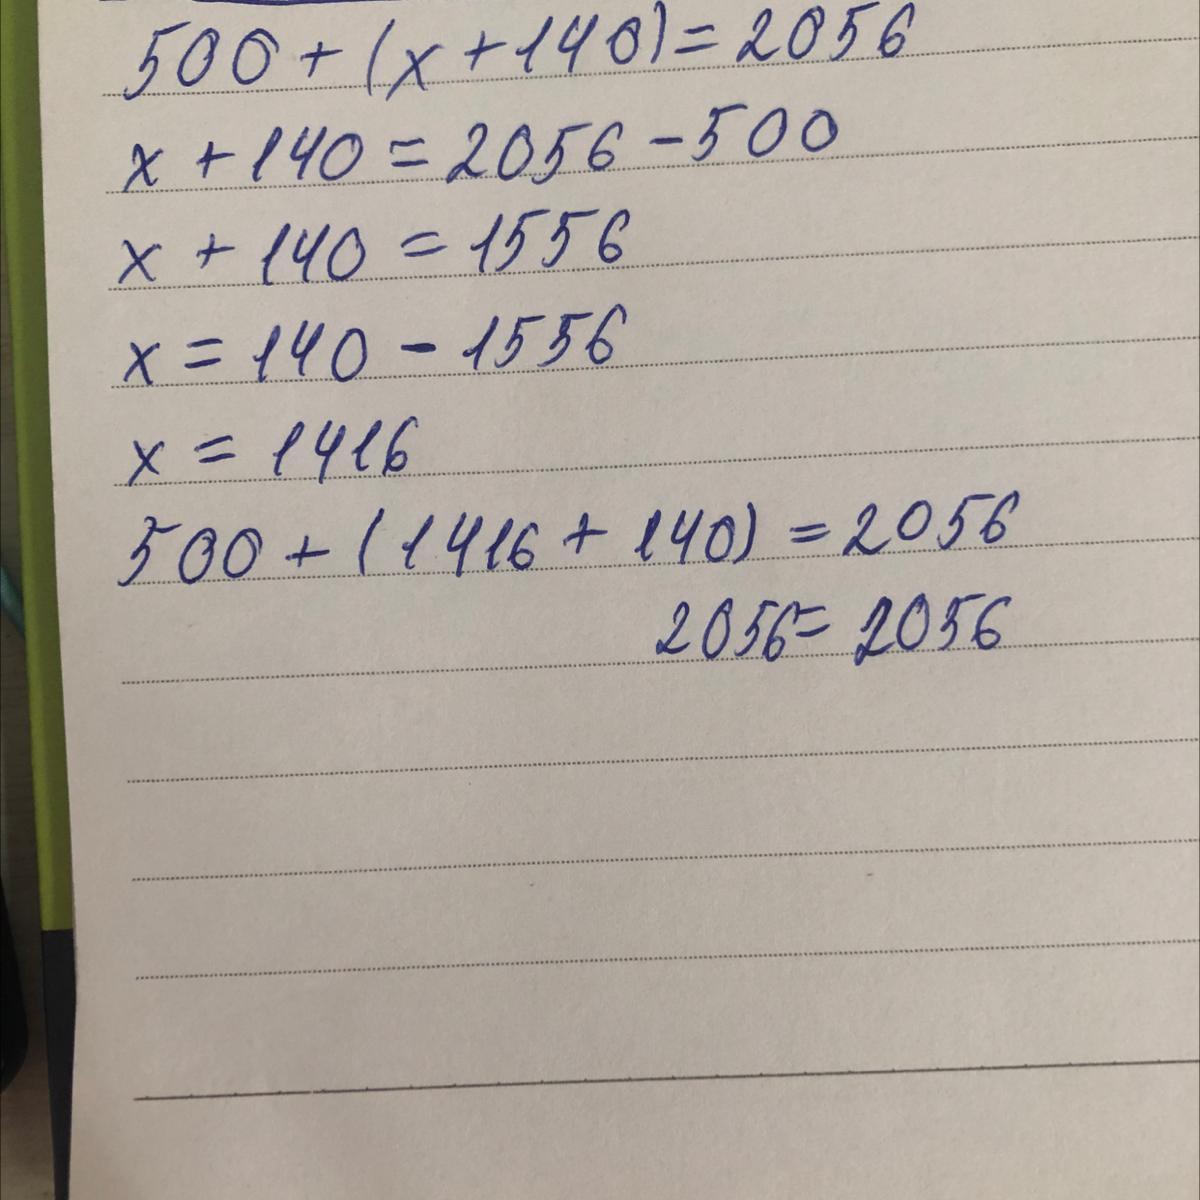 500 + (x + 140) = 2056
x + 140 = 2056 - 500
x + 140 = 1556
x = 140 - 1556
x = 1416
500 + (1416 + 140) = 2056
2056 = 2056